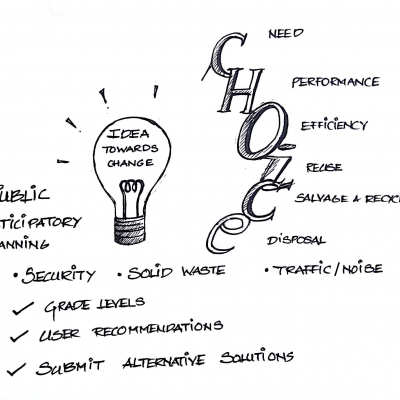 CHOICE
NEED
PERFORMANCE
EFFICIENCY
REUSE
SALVAGE & RECYC
DISPOSAL
IDEA
TOWARDS
CHANGE
UBLIC
TICIPATORY
ANNING
• SECURITY • SOLID WASTE • TRAFFIC/NOISE
✓ GRADE LEVELS
✓ USER RECOMMENDATIONS
✓ SUBMIT ALTERNATIVE SOLUTIONS